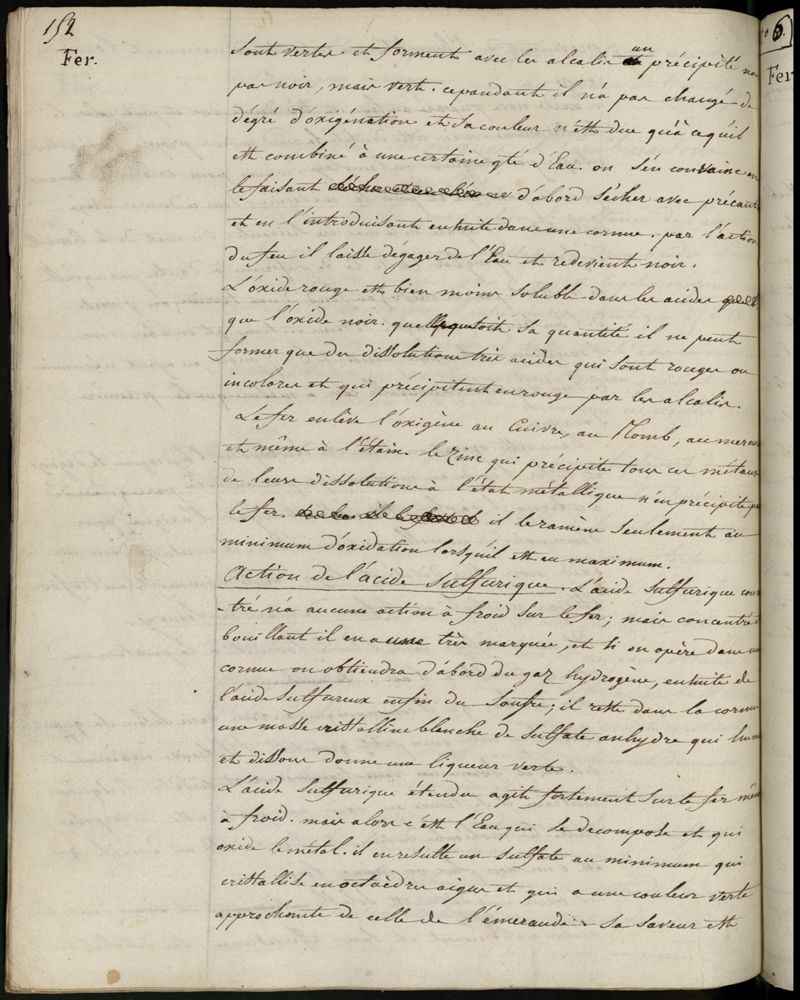 152
Fer.
sont vertes et forment avec les alcalis un précipité no
pas noir, mais vert. cependant il n'a pas changé de
dégré d'oxigénation et sa couleur n'est due qu'à ce qu'il
est combiné à une certaine qté d'Eau. on s'en convainc en
le faisant d'abord sécher avec précaut
et en l'introduisant ensuite dans une cornue. par l'action
du feu il laisse dégager de l'Eau et redevient noir.
L'oxide rouge est bien moins soluble dans les acides
que l'oxide noir. quelque soit sa quantité il ne peut
former que des dissolutions très acides qui sont rouges ou
incolores et qui précipitent en rouge par les alcalis.
Le fer enlève l'oxigène au Cuivre, au Plomb, au mercu
et même à l'étain. le Zinc qui précipite tous ces métaux
de leurs dissolutions à l'état métallique n'en précipite pa
le fer. il le ramène seulement au
minimum d'oxidation lorsqu'il est au maximum.
Action de l'acide Sulfurique. L'acide Sulfurique conce
-tré n'a aucune action à froid sur le fer; mais concentré e
bouillant il en a une très marquée, et si on opère dans un
cornue on obtiendra d'abord du gaz hydrogène, ensuite de
l'acide Sulfureux enfin du Soufre; il reste dans la cornue
une masse cristalline blanche de Sulfate anhydre qui hum
et dissous donne une liqueur verte.
L'acide Sulfurique étendu agit fortement sur le fer mêm
à froid. mais alors c'est l'Eau qui se decompose et qui
oxide le métal. il en résulte un sulfate au minimum qui
cristallise en octaèdres aigus et qui a une couleur verte
approchante de celle de l'émeraude. Sa saveur est
Fer